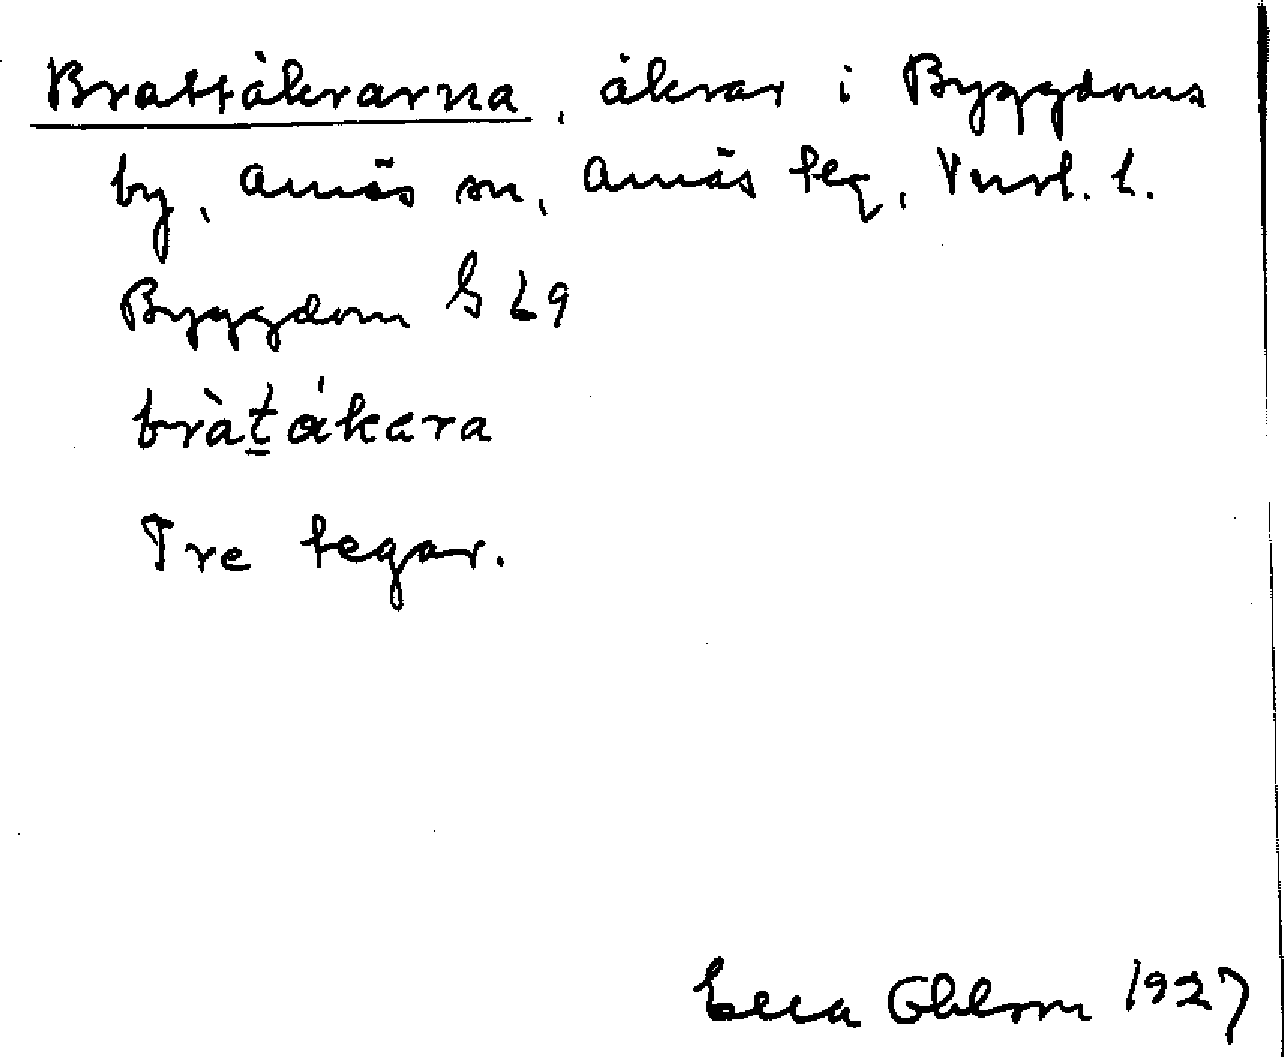 Brattåkrarna, åkrar i Byggdoms
by, Arnäs sn, Arnäs tg, Vnrl. l.
Byggdom G L9
bràt̲ákara
Tre tegar.
Ella Ohlson 1927